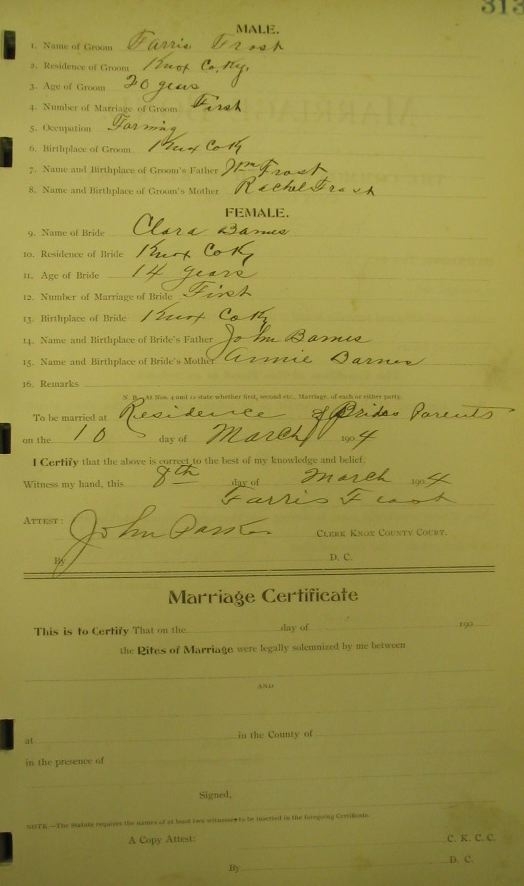 313
MALE.
1. Name of Groom Farris Frost
2. Residence of Groom Knox Co, Ky,
3. Age of Groom 20 years
4. Number of Marriage of Groom First
5. Occupation Farming
6. Birthplace of Groom Knox Co Ky
7. Name and Birthplace of Groom's Father Wm Frost
8. Name and Birthplace of Groom's Mother Rachel Frost
FEMALE.
9. Name of Bride Clara Barnes
10. Residence of Bride Knox Co Ky
11. Age of Bride 14 years
12. Number of Marriage of Bride First
13. Birthplace of Bride Knox Co Ky
14. Name and Birthplace of Bride's Father John Barnes
15. Name and Birthplace of Bride's Mother Annie Barnes
16. Remarks
N. B.—At Nos. 4 and 12 state whether first, second etc., Marriage, of each or either party.
To be married at Residence of Brides Parents
on the 10 day of March 1904
I Certify that the above is correct to the best of my knowledge and belief.
Witness my hand, this 8th day of March 1904
Farris Frost
ATTEST: John Parker CLERK KNOX COUNTY COURT.
By D. C.
Marriage Certificate
This is to Certify That on the day of 190
the Rites of Marriage were legally solemnized by me between
AND
at in the County of
in the presence of
Signed,
NOTE.—The Statute requires the names of at least two witnesses to be inserted in the foregoing Certificate.
A Copy Attest: C. K. C. C.
By D. C.